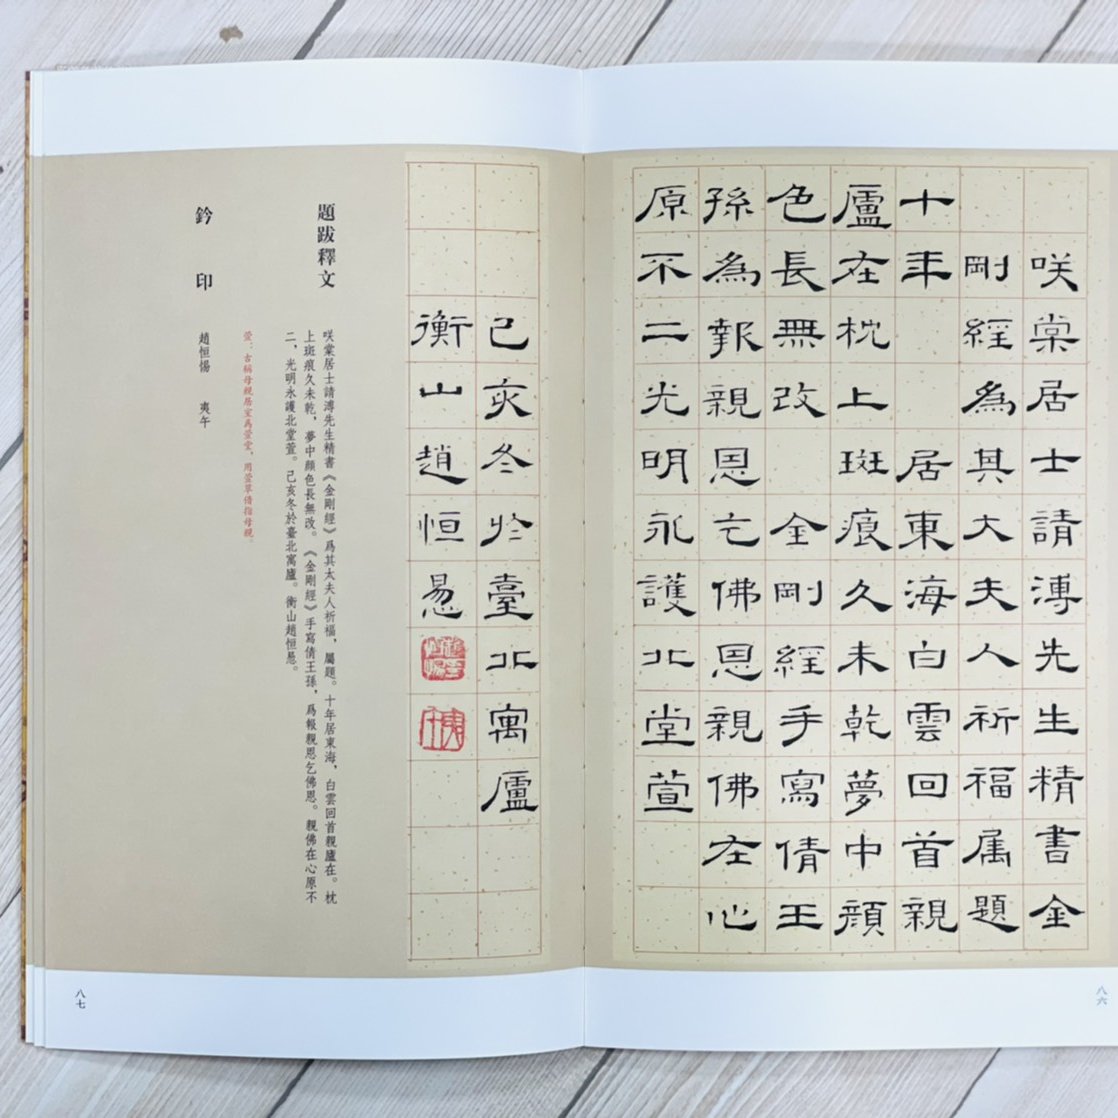 咲棠居士請溥先生精書金
剛經為其大夫人祈福属題
十年 居東海白雲回首親
廬在枕上斑痕久未乾夢中顏
色長無改 金剛經手寫倩王
孫為報親恩乞佛恩親佛在心
原不二光明永護北堂萱
八六
己亥冬於臺北寓廬
衡山趙恒惖
題跋釋文
咲棠居士請溥先生精書《金剛經》爲其太夫人祈福，屬題。十年居東海，白雲回首親廬在。枕
上斑痕久未乾，夢中顏色長無改。《金剛經》手寫倩王孫，爲報親恩乞佛恩。親佛在心原不
二，光明永護北堂萱。己亥冬於臺北寓廬。衡山趙恒惖。
萱：古稱母親居室爲萱堂，用萱草借指母親。
鈐印
趙恒惕 夷午
八七